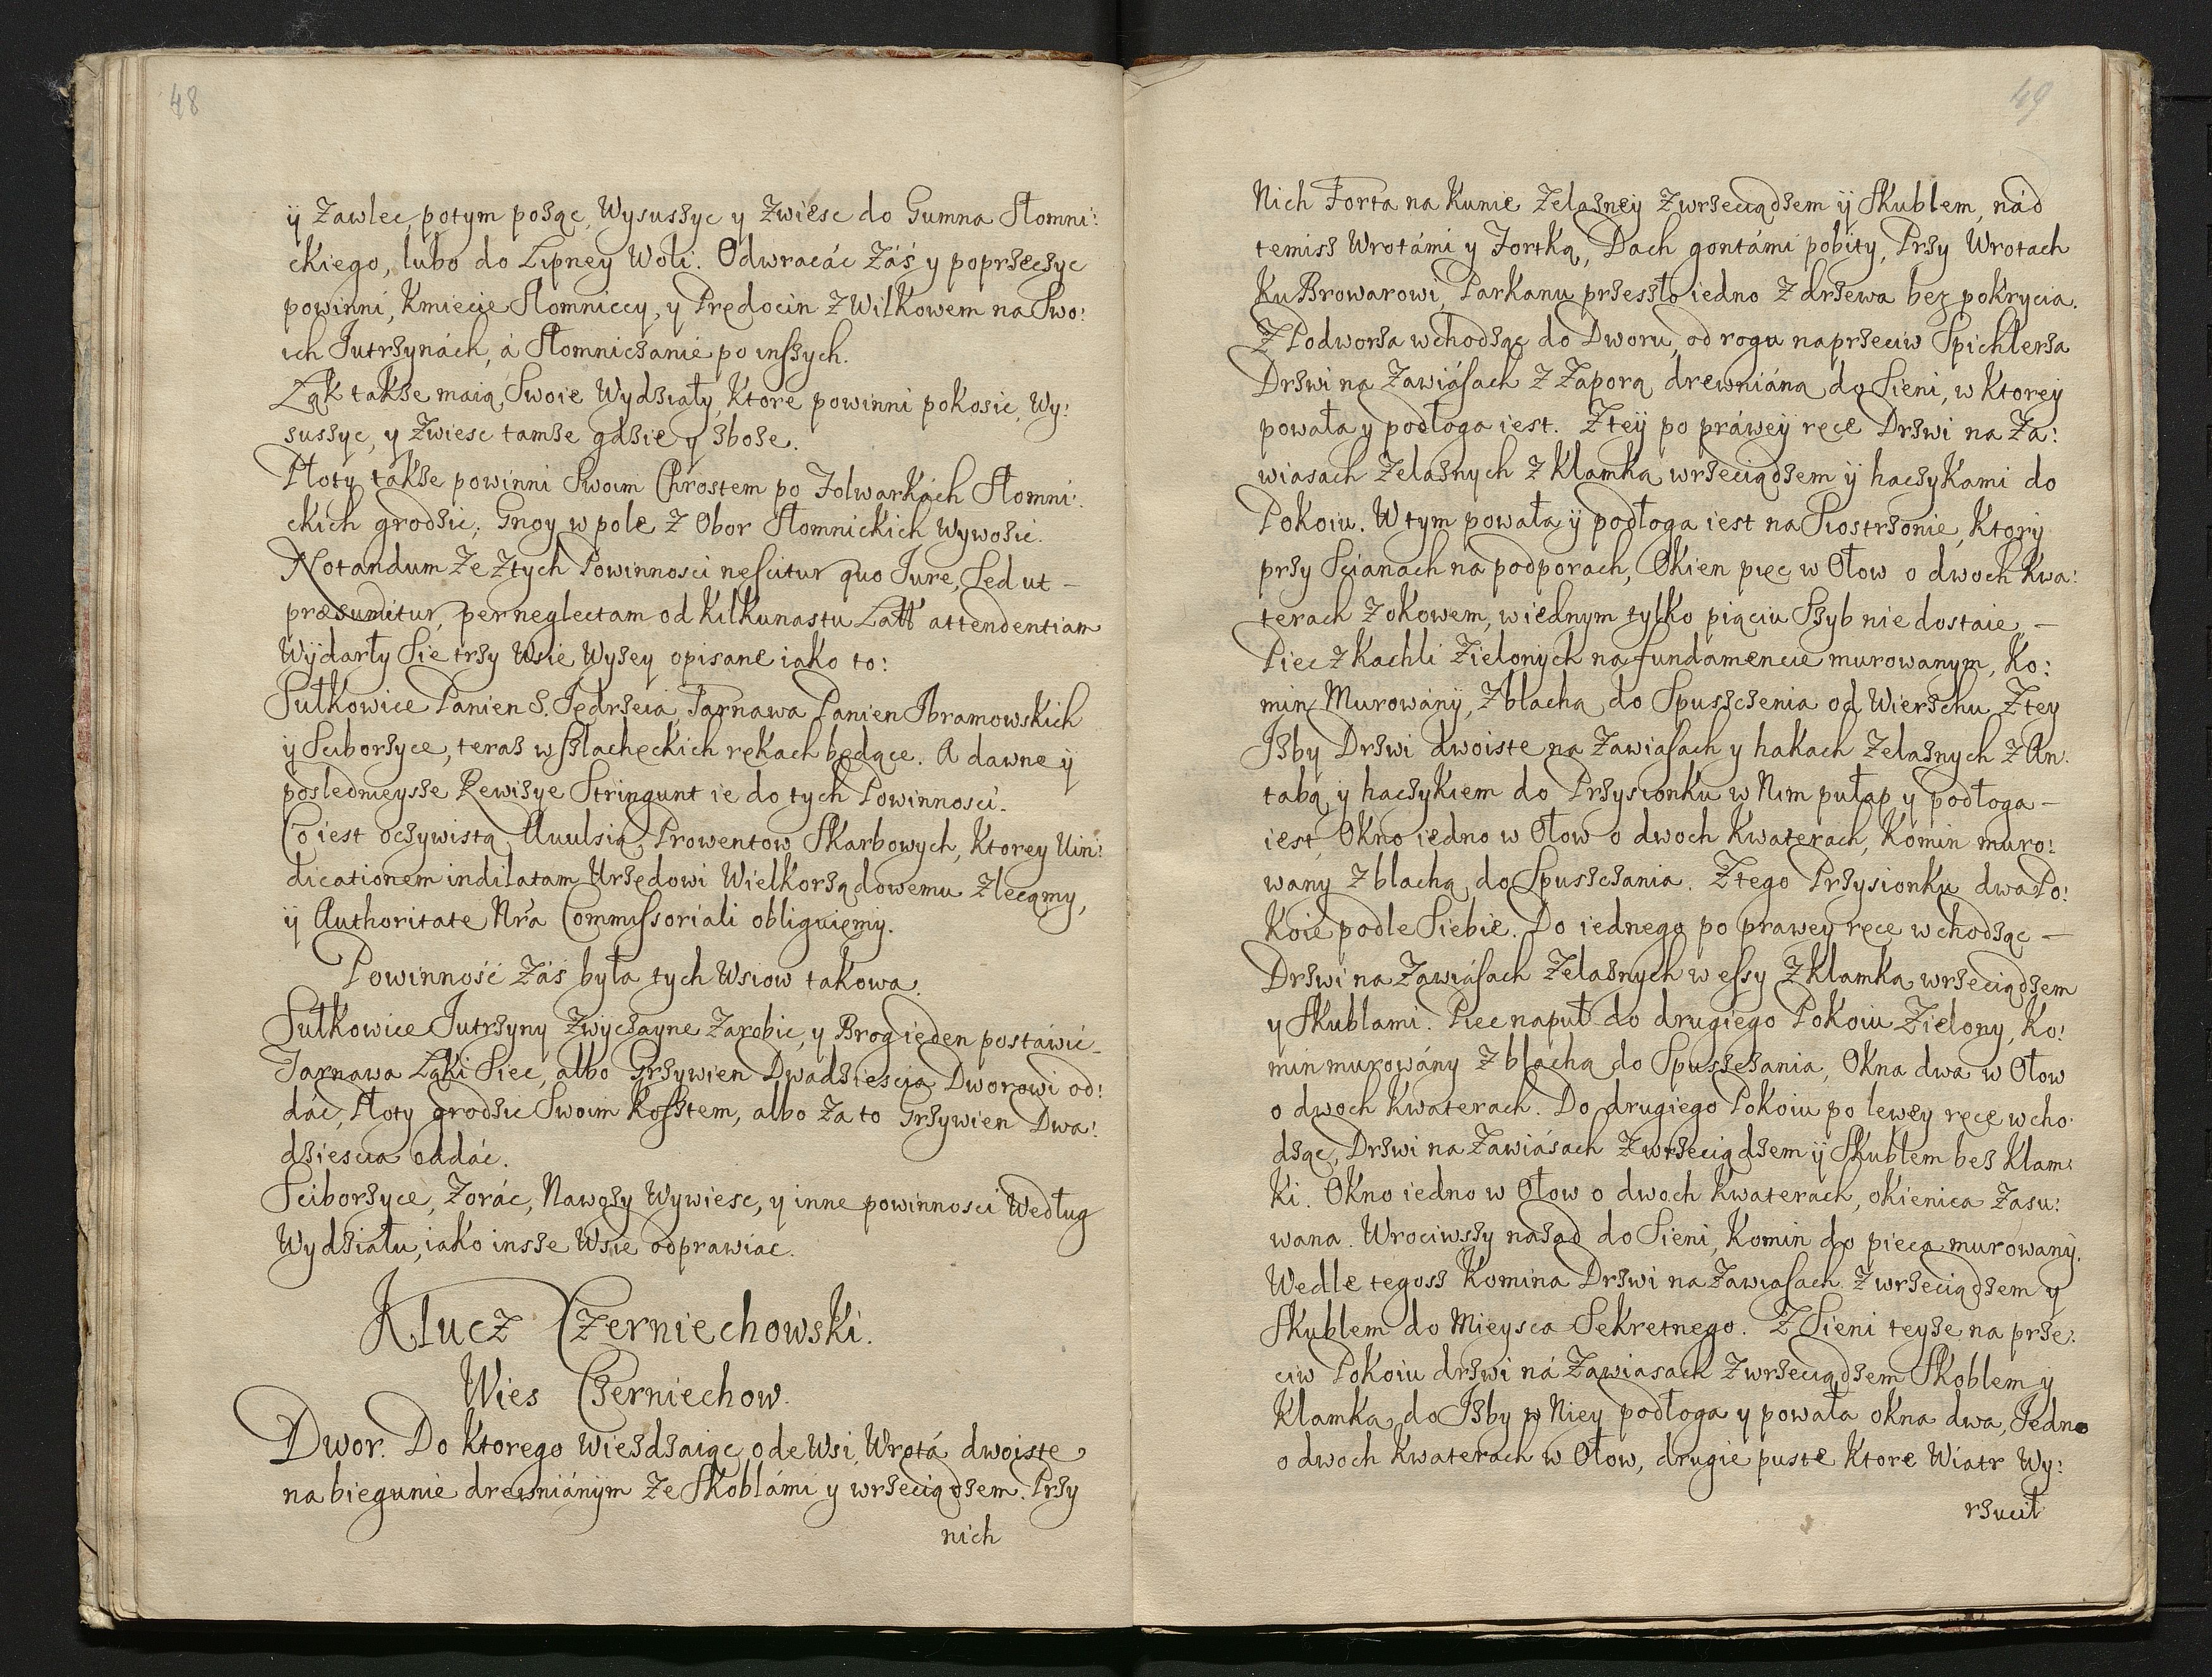 48
ÿ Zawlec, potym pożąc, Wysuszyc y Zwiesc do Gumna Słomni:
ckiego, lubo do Lipney Woli. Odwracác Záś y poprzeczyc
powinni, Kmiecie Słomniccy, y Prędocin z Wilkowem na Swo:
ich Jutrzynách, á Słomniczanie po inszych.
Łąk także maią Swoie Wydziały, Ktore powinni pokosic, Wy:
suszyc, y Zwiesc tamże gdzie y zboże.
Płoty także powinni Swoim Chrostem po Folwarkách Słomni:
ckich grodzic, Gnoy w pole z Obor Słomnickich Wywozic.
Notandum Ze Ztych Powinnosci nescitur quo Jure, Sed ut –
præsumitur, per neglectam od Kilkunastu Latt attendentiam
Wÿdarły Sie trzy Wsie Wyżey opisane iako to:
Sułkowice Panien S. Jędrzeia, Tarnawa Panien Ibramowskich
ÿ Sciborzyce, teraz w szlacheckich rękach będące. A dawne ÿ
poslednieysze Rewizye Stringunt ie do tych Powinnosci.
Co iest oczywistą Auulsią Prowentow Skarbowych, Ktorey Uin:
dicationem indilatam Urzędowi Wielkorządowemu Zlecamy,
ÿ Authoritate Nra Commissoriali obliguięmy.
Powinność Záś była tych Wsiow takowa.
Sułkowice Jutrzyny Zwyczayne Zarobic, y Brog ieden postáwić –
Tarnawa Łąki Siec, albo Grzywien Dwadziescia Dworowi od:
dác, Płoty grodzic Swoim Kosztem, albo Za to Grzywien Dwa:
dziescia oddác.
Sciborzyce, Zorác, Nawozy Wywiesc, y inne powinnosci Według
Wydziału, iako insze Wsie odprawiac.
Klucz Czerniechowski.
Wies Czerniechow.
Dwor. Do Ktorego Wieżdzaiąc ode Wsi, Wrotá dwoiste
na biegunie drewniánÿm Ze Skoblámi y wrzeciądzem. Przy
nich
49
Nich Forta na Kunie Zelazney Zwrzeciądzem ÿ Skublem, nád
temisz Wrotámi y Fortką, Dach gontámi pobity, Przy Wrotach
Ku Browarowi Parkanu przeszło iedno z drzewa bez pokrycia.
Z Podworza wchodząc do Dworu, od rogu naprzeciw Spichlerza
Drzwi na Zawiásach z Zaporą drewniáną do Sieni, w Ktorey
powała y podłoga iest. Ztey po práwey ręce Drzwi na Za:
wiasach Zelaznych z Klamką wrzeciądzem ÿ haczykami do
Pokoiu. W tym powała ÿ podłoga iest na Siostrzonie, Ktory
przy Scianach na podporach, Okien pięc w Ołow o dwoch Kwa:
terach z okowem, w iednym tylko piąciu Szyb nie dostaie –
Piec z Kachli Zielonych na fundamencie murowanym, Ko:
min Murowánÿ, z blachą do Spuszczenia od Wierzchu Ztey
Izby Drzwi dwoiste na Zawiasach y hakach Zelaznych z An:
tabą y haczykiem do Przysionku w Nim pułap y podłoga –
iest, Okno iedno w Ołow o dwoch Kwaterach, Komin muro:
wany z blachą do Spuszczania. Ztego Przysionku dwa Po:
Koie podle Siebie. Do iednego po prawey ręce wchodząc –
Drzwi na Zawiásach Zelaznych w essy z Klamką wrzeciądzem
y Skublami. Piec napuł do drugiego Pokoiu Zielony, Ko:
min murowány z blachą do Spuszczania, Okna dwa w Ołow
o dwoch Kwaterach. Do drugiego Pokoiu po lewey ręce wcho:
dząc, Drzwi na Zawiásach Zwrzeciądzem ÿ Skublem bez Klam:
Ki. Okno iedno w Ołow o dwoch Kwaterach, okienica Zasu:
wana. Wrociwszy nazad do Sieni, Komin do pieca murowanÿ.
Wedle tegosz Komina Drzwi na Zawiasach Zwrzeciądzem y
Skublem do Mieysca Sekretnego. Z Sieni teyże na prze:
ciw Pokoiu drzwi ná Zawiasach Zwrzeciądzem Skoblem y
Klamką do Izby w Niey podłoga y powała okna dwa, Jedno
o dwoch Kwaterach w Ołow, drugie puste Ktore Wiatr Wy:
rzucił